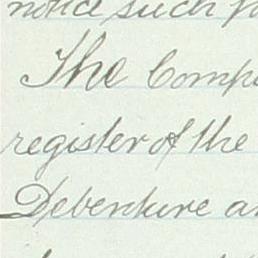 notice such
The Comp
register of the
Debenture a